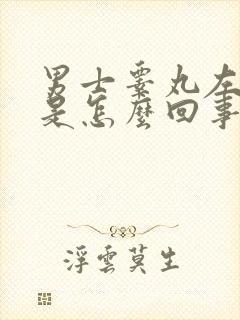 男士睪丸左
是怎麼回事
浮雲莫生